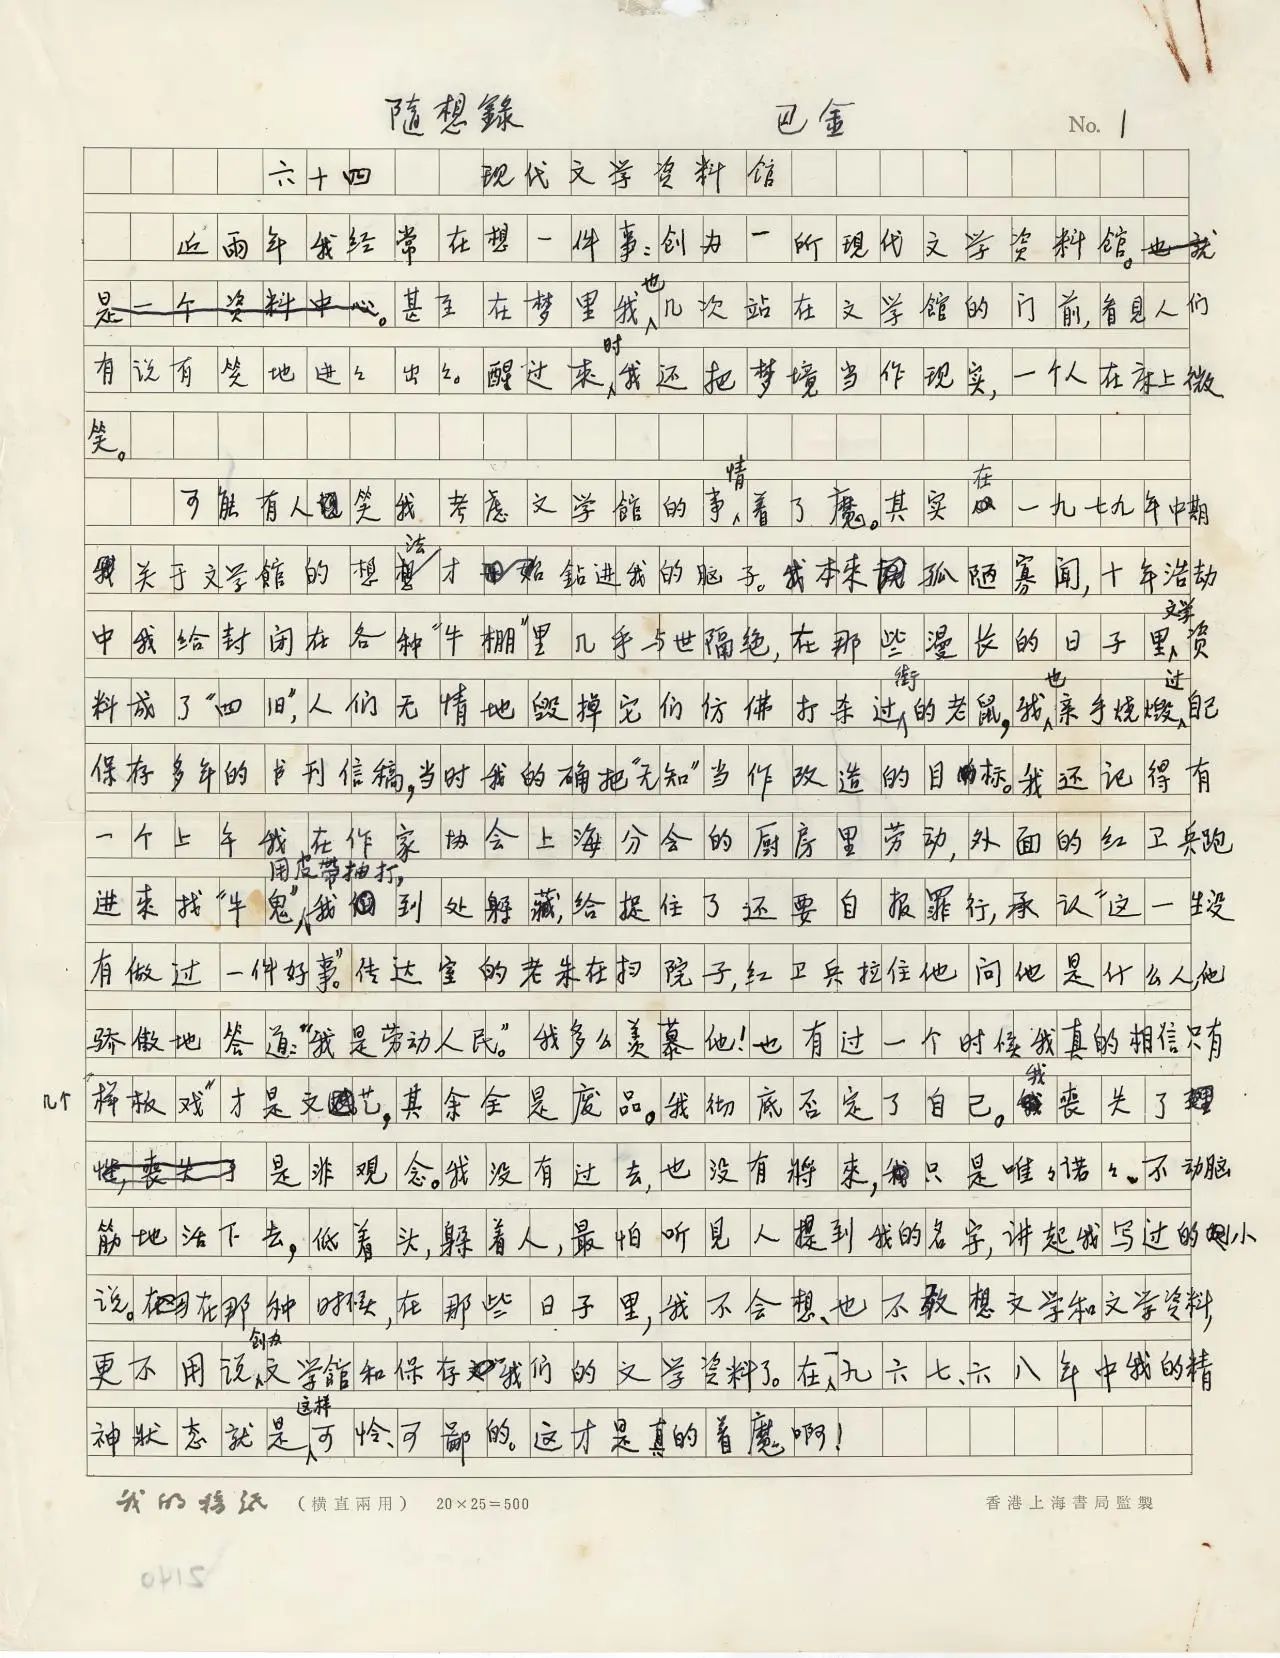 隨想錄　巴金　No. 1
六十四　现代文学资料馆
近両年我经常在想一件事：创办一所现代文学资料馆。也就
是一个资料中心。甚至在梦里我也几次站在文学馆的门前，看见人们
有说有笑地进々出々。醒过来时，我还把梦境当作现实，一个人在床上微
笑。
可能有人笑我考虑文学馆的事情，着了魔。其实在一九七九年中期
关于文学館的想法才开始鉆进我的脑子。我本来孤陋寡闻，十年浩劫
中我给封闭在各种“牛棚”里几乎与世隔绝，在那些漫长的日子里，文学资
料成了“四旧”，人们无情地毁掉它们仿佛打杀过街的老鼠，我也亲手烧燬过自己
保存多年的书刊信稿，当时我的确把“无知”当作改造的目标。我还记得有
一个上午我在作家协会上海分会的厨房里劳动，外面的红卫兵跑
进来找“牛鬼”用皮带抽打，我到处躲藏，给捉住了还要自报罪行，承认“这一生没
有做过一件好事”。传达室的老朱在扫院子，红卫兵拉住他问他是什么人，他
骄傲地答道：“我是劳动人民。”我多么羡慕他！也有过一个时候我真的相信只有
几个“样板戏”才是文艺，其余全是废品。我彻底否定了自己。我丧失了理
性，丧失了是非观念。我没有过去，也没有將来，只是唯々诺々、不动脑
筋地活下去，低着头，躲着人，最怕听见人提到我的名字，讲起我写过的小
说。在那种时候，在那些日子里，我不会想、也不敢想文学和文学资料，
更不用说创办文学館和保存我们的文学资料了。在一九六七、六八年中我的精
神狀态就是这样可怜、可鄙的。这才是真的着魔啊！
我的稿纸　（橫直兩用）　20×25=500　香港上海書局監製
2140